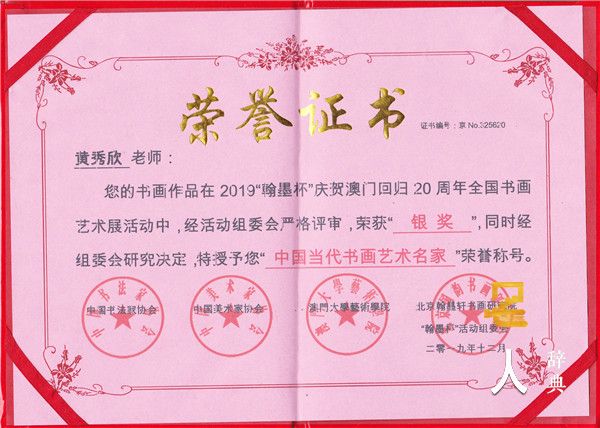 荣誉证书
证书编号：京 No.325620
黄秀欣 老师：
您的书画作品在2019“翰墨杯”庆贺澳门回归20周年全国书画
艺术展活动中，经活动组委会严格评审，荣获“ 银奖 ”，同时经
组委会研究决定，特授予您“中国当代书画艺术名家”荣誉称号。
中国书法家协会
中国美术家协会
澳门大學藝術學院
北京翰墨轩书画研究院
“翰墨杯”活动组委会
二零一九年十二月
人 辞典